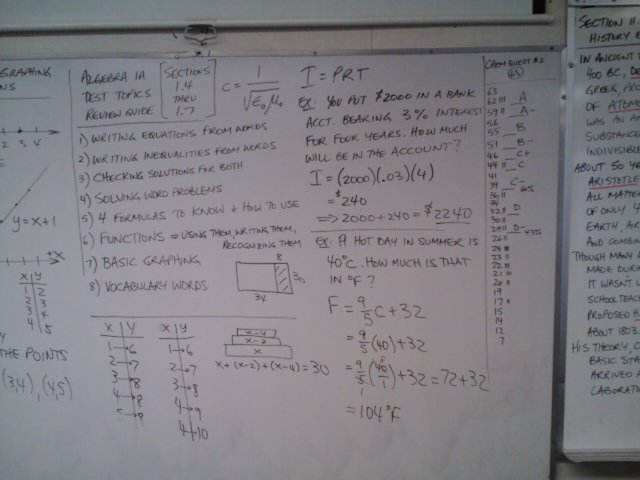 GRAPHING
1 2 3 4
y=x+1
X
X Y
1 2
2 3
3 4
4 5
THE POINTS
(3,4), (4,5)
ALGEBRA 1A
TEST TOPICS
REVIEW GUIDE
SECTIONS
1.4
THRU
1.7
C = 1/√ε₀μ₀
1) WRITING EQUATIONS FROM WORDS
2) WRITING INEQUALITIES FROM WORDS
3) CHECKING SOLUTIONS FOR BOTH
4) SOLVING WORD PROBLEMS
5) 4 FORMULAS TO KNOW + HOW TO USE
6) FUNCTIONS ⇒ USING THEM, WRITING THEM,
RECOGNIZING THEM
7) BASIC GRAPHING
8) VOCABULARY WORDS
8
34
X Y
1→6
2→7
3→8
4→8
5→8
X Y
1→6
2→7
3→8
4→9
4→10
x-4
x-2
x
x+(x-2)+(x-4)=30
I = PRT
EX: YOU PUT $2000 IN A BANK
ACCT. BEARING 3% INTEREST
FOR FOUR YEARS. HOW MUCH
WILL BE IN THE ACCOUNT?
I = (2000)(.03)(4)
= $240
⇒ 2000+240 = $2240
EX: A HOT DAY IN SUMMER IS
40°C. HOW MUCH IS THAT
IN °F?
F = 9/5 C + 32
= 9/5 (40) + 32
= 9/5 (40/1) + 32 = 72 + 32
= 104°F
CHEM QUEST #2
(63)
63
62 III A
59 II A-
56
55 B
51 B-
46 C+
49 II C
41
39 C-
36 II 60%
34
32 II D
30 II
29 II D- 43%
26 II
24 III
23 II
22 III
21 III
20 II
19
17
15
14
12
7
SECTION 11.
HISTORY
IN ANCIENT
400 BC, DE
GREEK, PRO
OF ATOMO
WAS AN A
SUBSTANCE
INDIVISIBLE
ABOUT 50 YE
ARISTOTLE
ALL MATTE
OF ONLY 4
EARTH, AIR
AND COMBIN
THOUGH MANY
MADE DURIN
IT WASN'T U
SCHOOLTEAC
PROPOSED H
ABOUT 1803.
HIS THEORY, C
BASIC STA
ARRIVED A
LABORATO